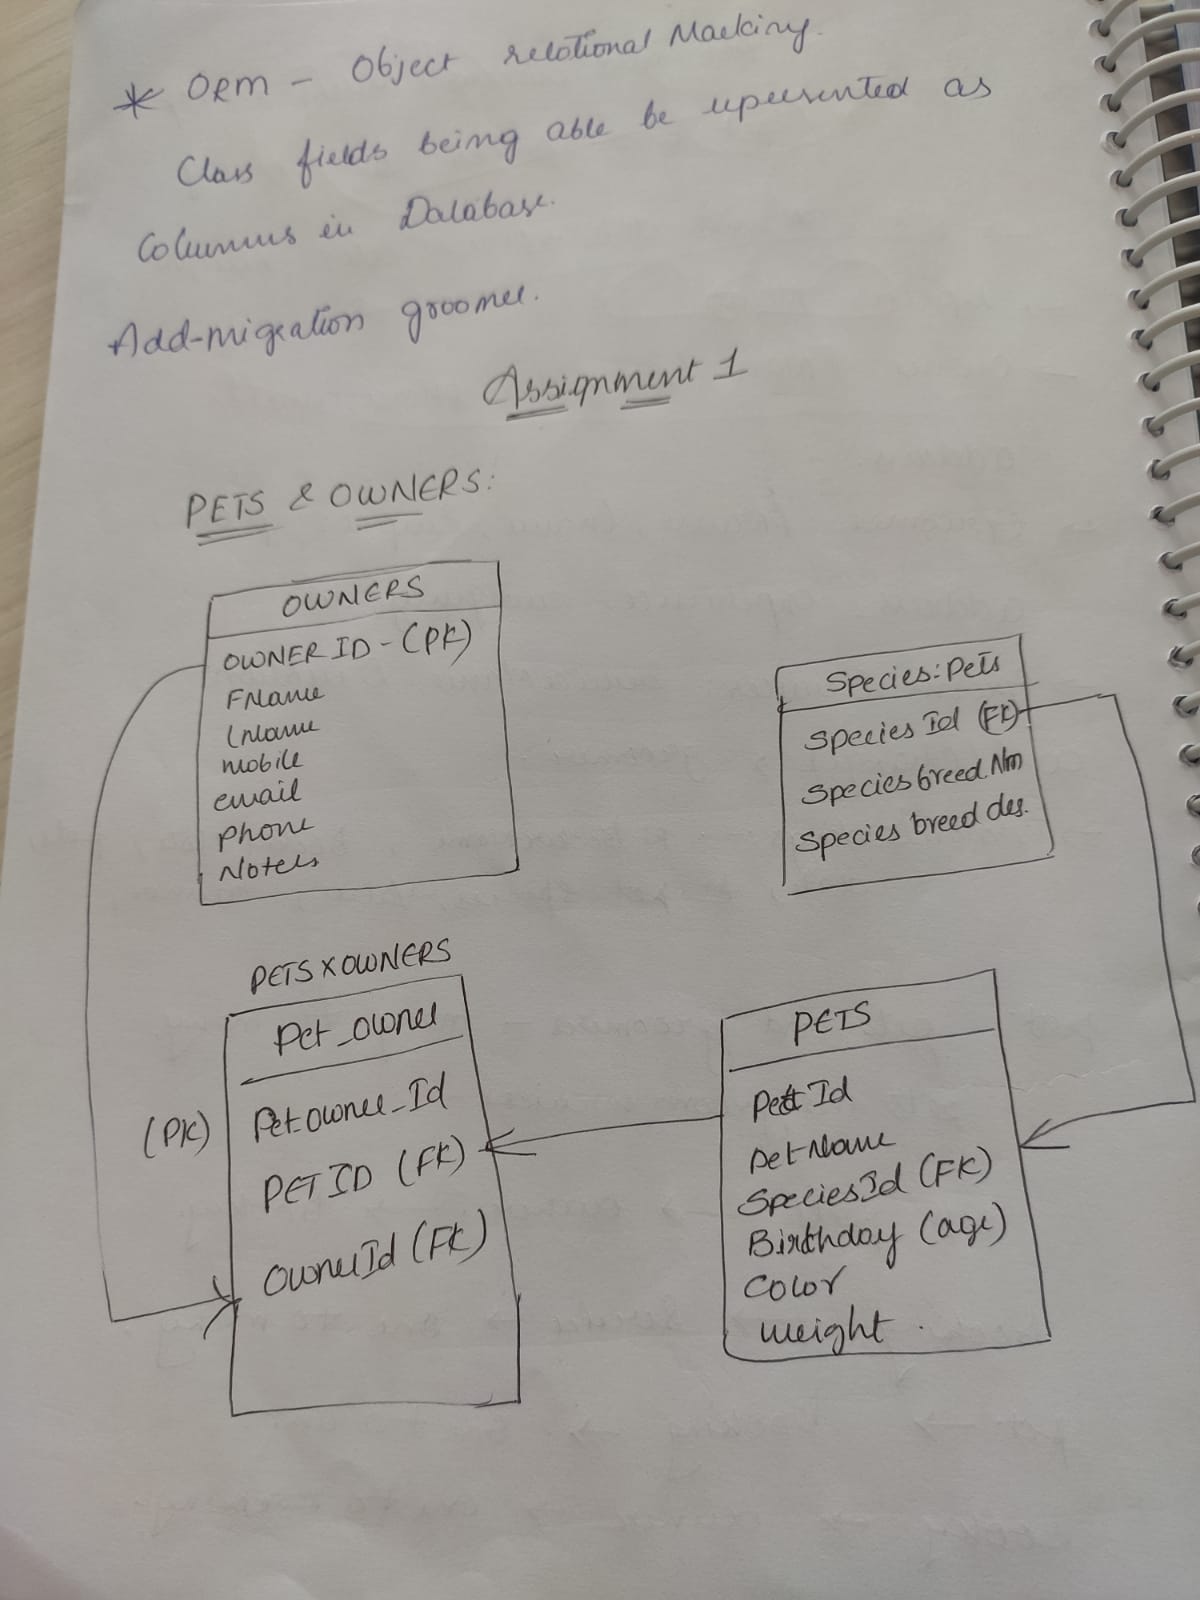 * ORM - Object relational Macking.
Class fields being able be represented as
Columns in Database.
Add-migration groomer.
Assignment 1
PETS & OWNERS:
OWNERS
OWNER ID - (PK)
FName
LName
mobile
email
phone
Notes
Species: Pets
Species Id (FK)
Species breed.Nm
Species breed des.
PETS X OWNERS
Pet_owner
(PK) Pet.owner_Id
PET ID (FK)
OwnerId (FK)
PETS
Pet Id
Pet Name
Species Id (FK)
Birthday (age)
Color
weight.